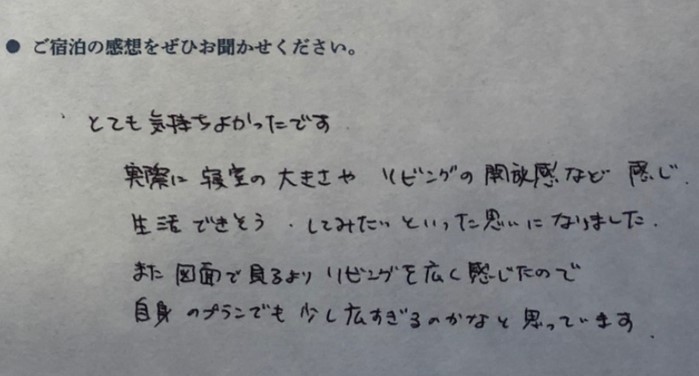 ● ご宿泊の感想をぜひお聞かせください。
とても気持ちよかったです
実際に寝室の大きさや リビングの開放感など 感じ
生活できそう・してみたいといった思いになりました.
また図面で見るよりリビングを広く感じたので
自身のプランでも少し広すぎるのかなと思っています.